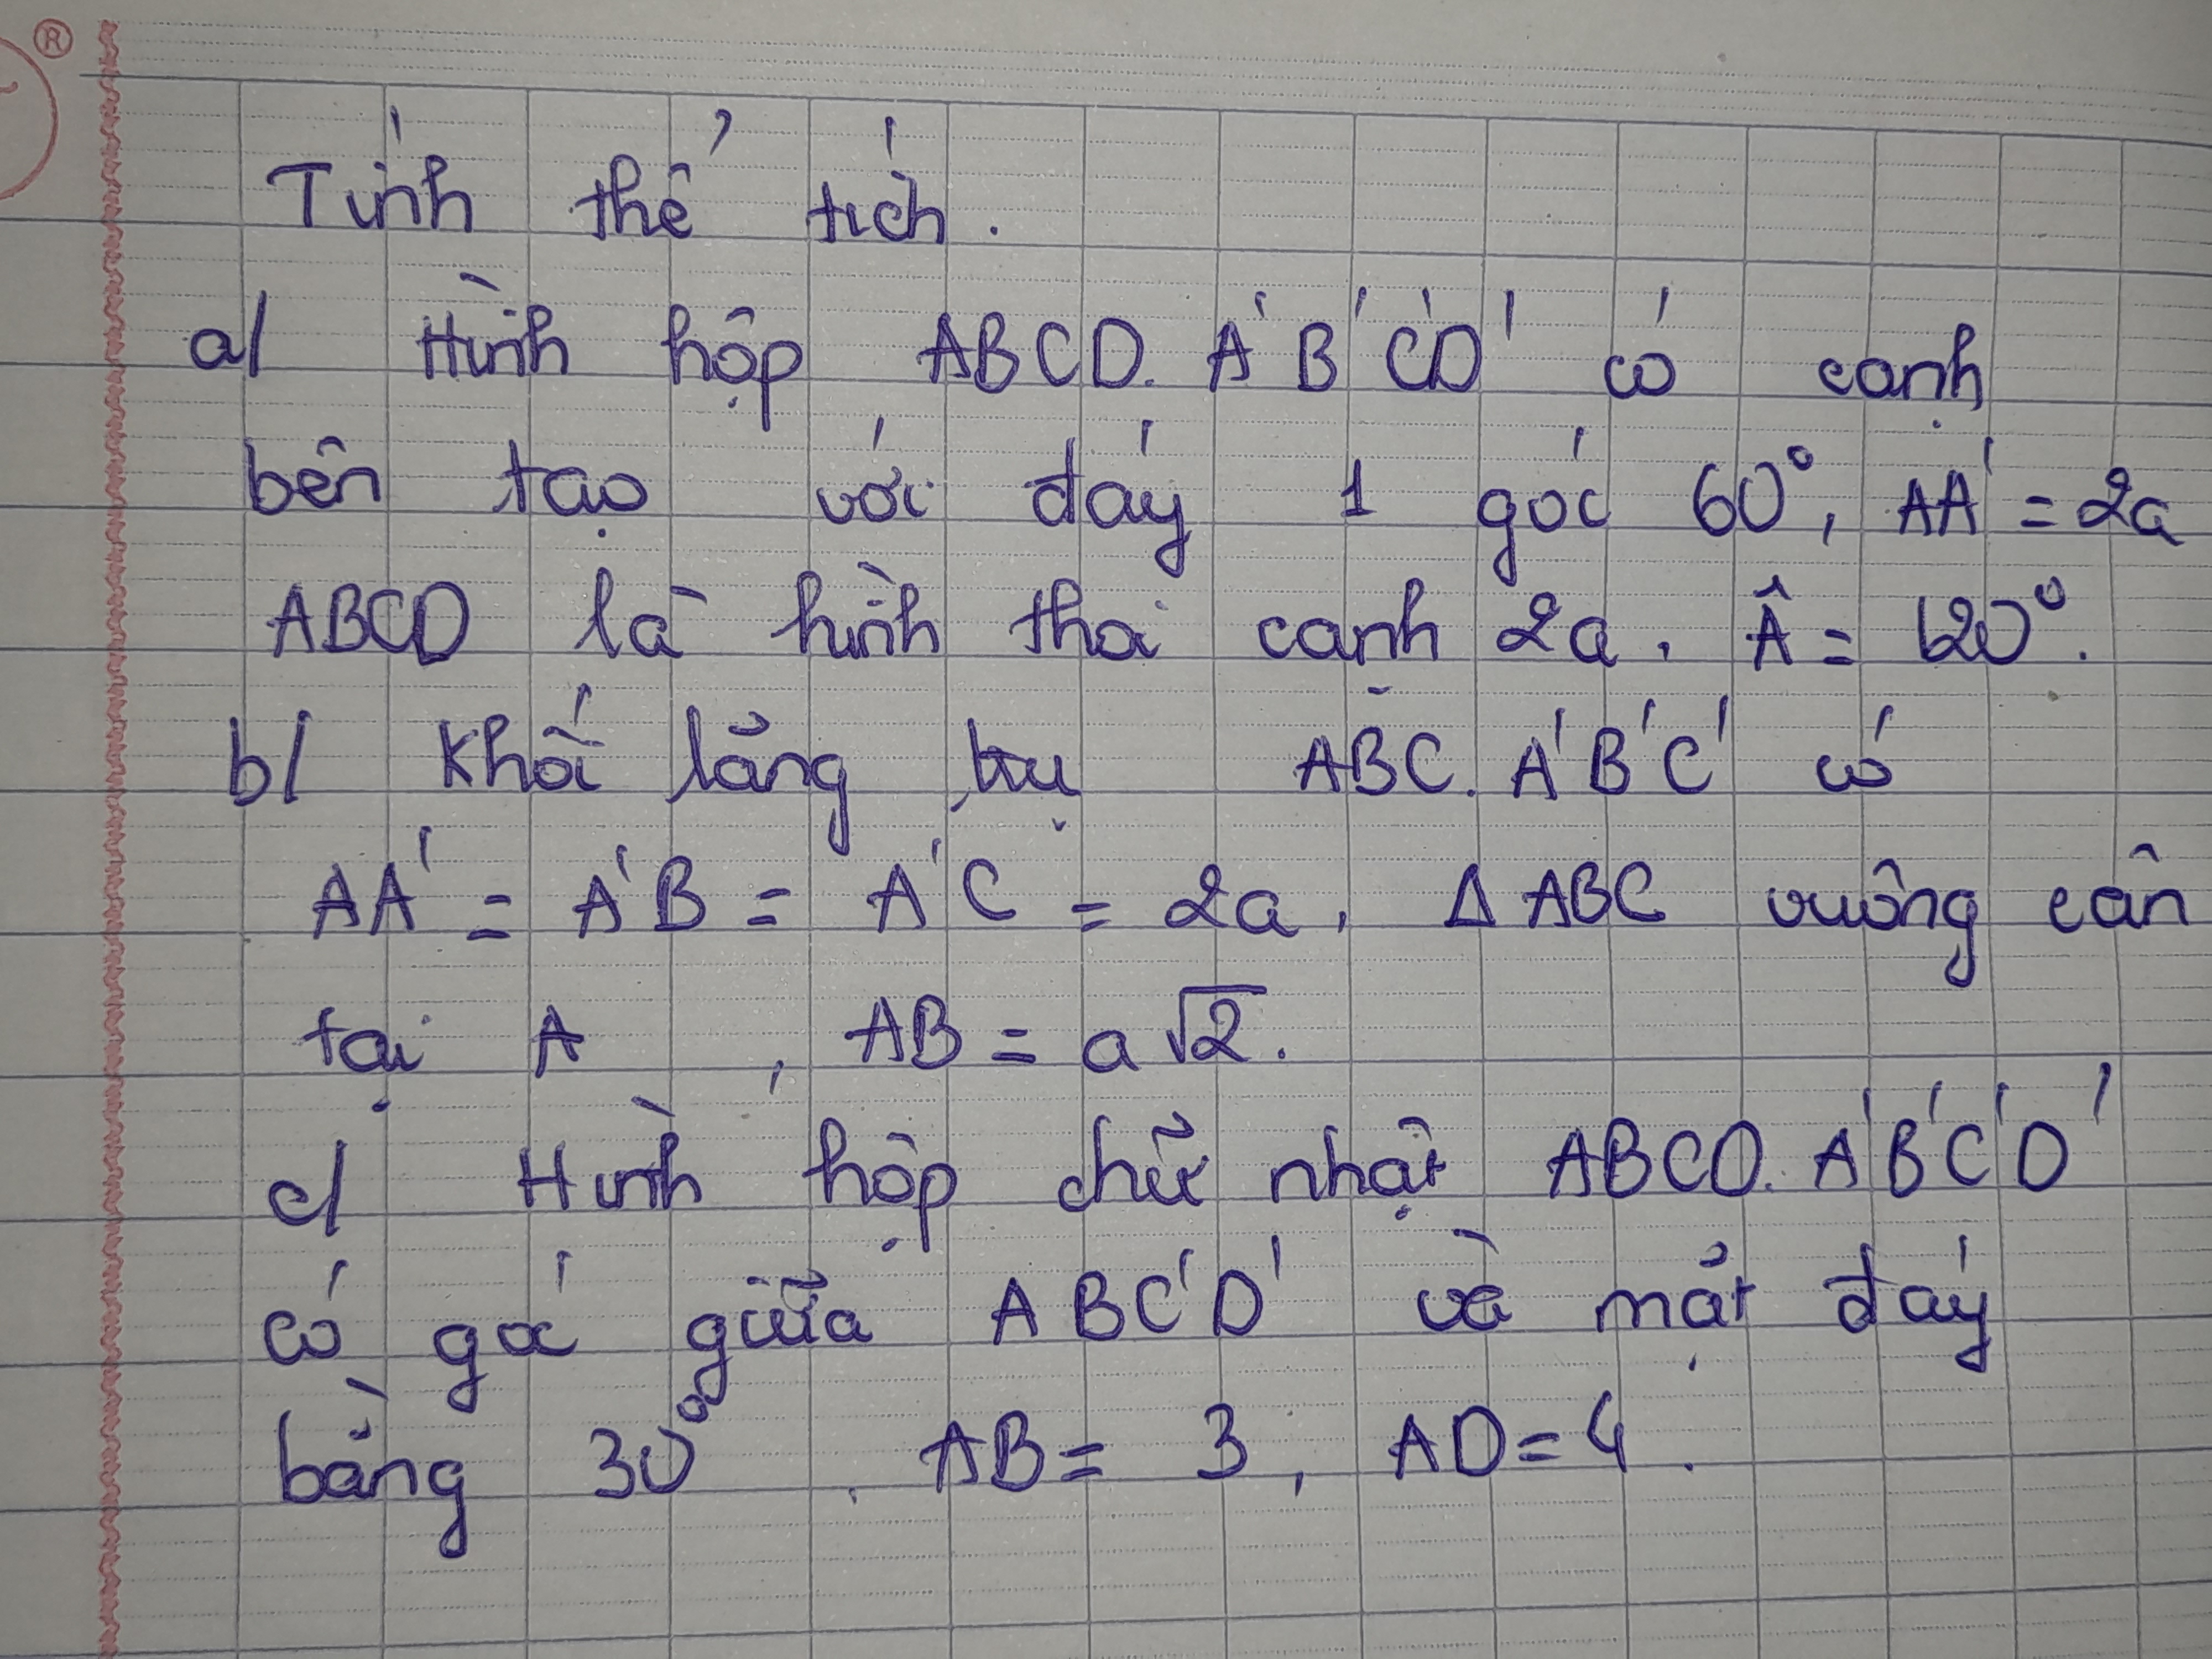 ®
Tính thể tích.
a/ Hình hộp ABCD.A'B'C'D' có cạnh
bên tạo với đáy 1 góc 60°, AA' = 2a
ABCD là hình thoi cạnh 2a, Â = 120°.
b/ Khối lăng trụ ABC.A'B'C' có
AA' = A'B = A'C = 2a, Δ ABC vuông cân
tại A, AB = a√2.
c/ Hình hộp chữ nhật ABCD.A'B'C'D'
có góc giữa ABC'D' và mặt đáy
bằng 30°. AB = 3, AD = 4.